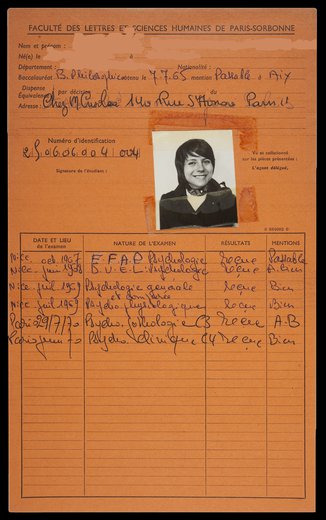 FACULTÉ DES LETTRES ET SCIENCES HUMAINES DE PARIS-SORBONNE
Nom et prénom :
Né(e) le
Département : Nationalité :
Baccalauréat B. Philosophie obtenu le 7.7.65 mention Passable à Aix
Dispense par décision du
Équivalence
Adresse : Chez M. 140 Rue St Honoré Paris
Numéro d'identification
Vu et collationné
sur les pièces présentées :
Signature de l'étudiant :
L'agent délégué,
DATE ET LIEU de l'examen NATURE DE L'EXAMEN RÉSULTATS MENTIONS
Nice oct 1967 Psychologie reçue Passable
Nice juin 1968 D.U.E.L. Psychologie reçue A. Bien
Nice juil 1969 Psychologie générale reçue Bien
et comparée
Nice juil 1969 Psychophysiologique reçue Bien
Paris 29/7/70 Psycho. pathologie C3 reçue A.B
Paris juin 70 Psycho. clinique C4 reçue Bien